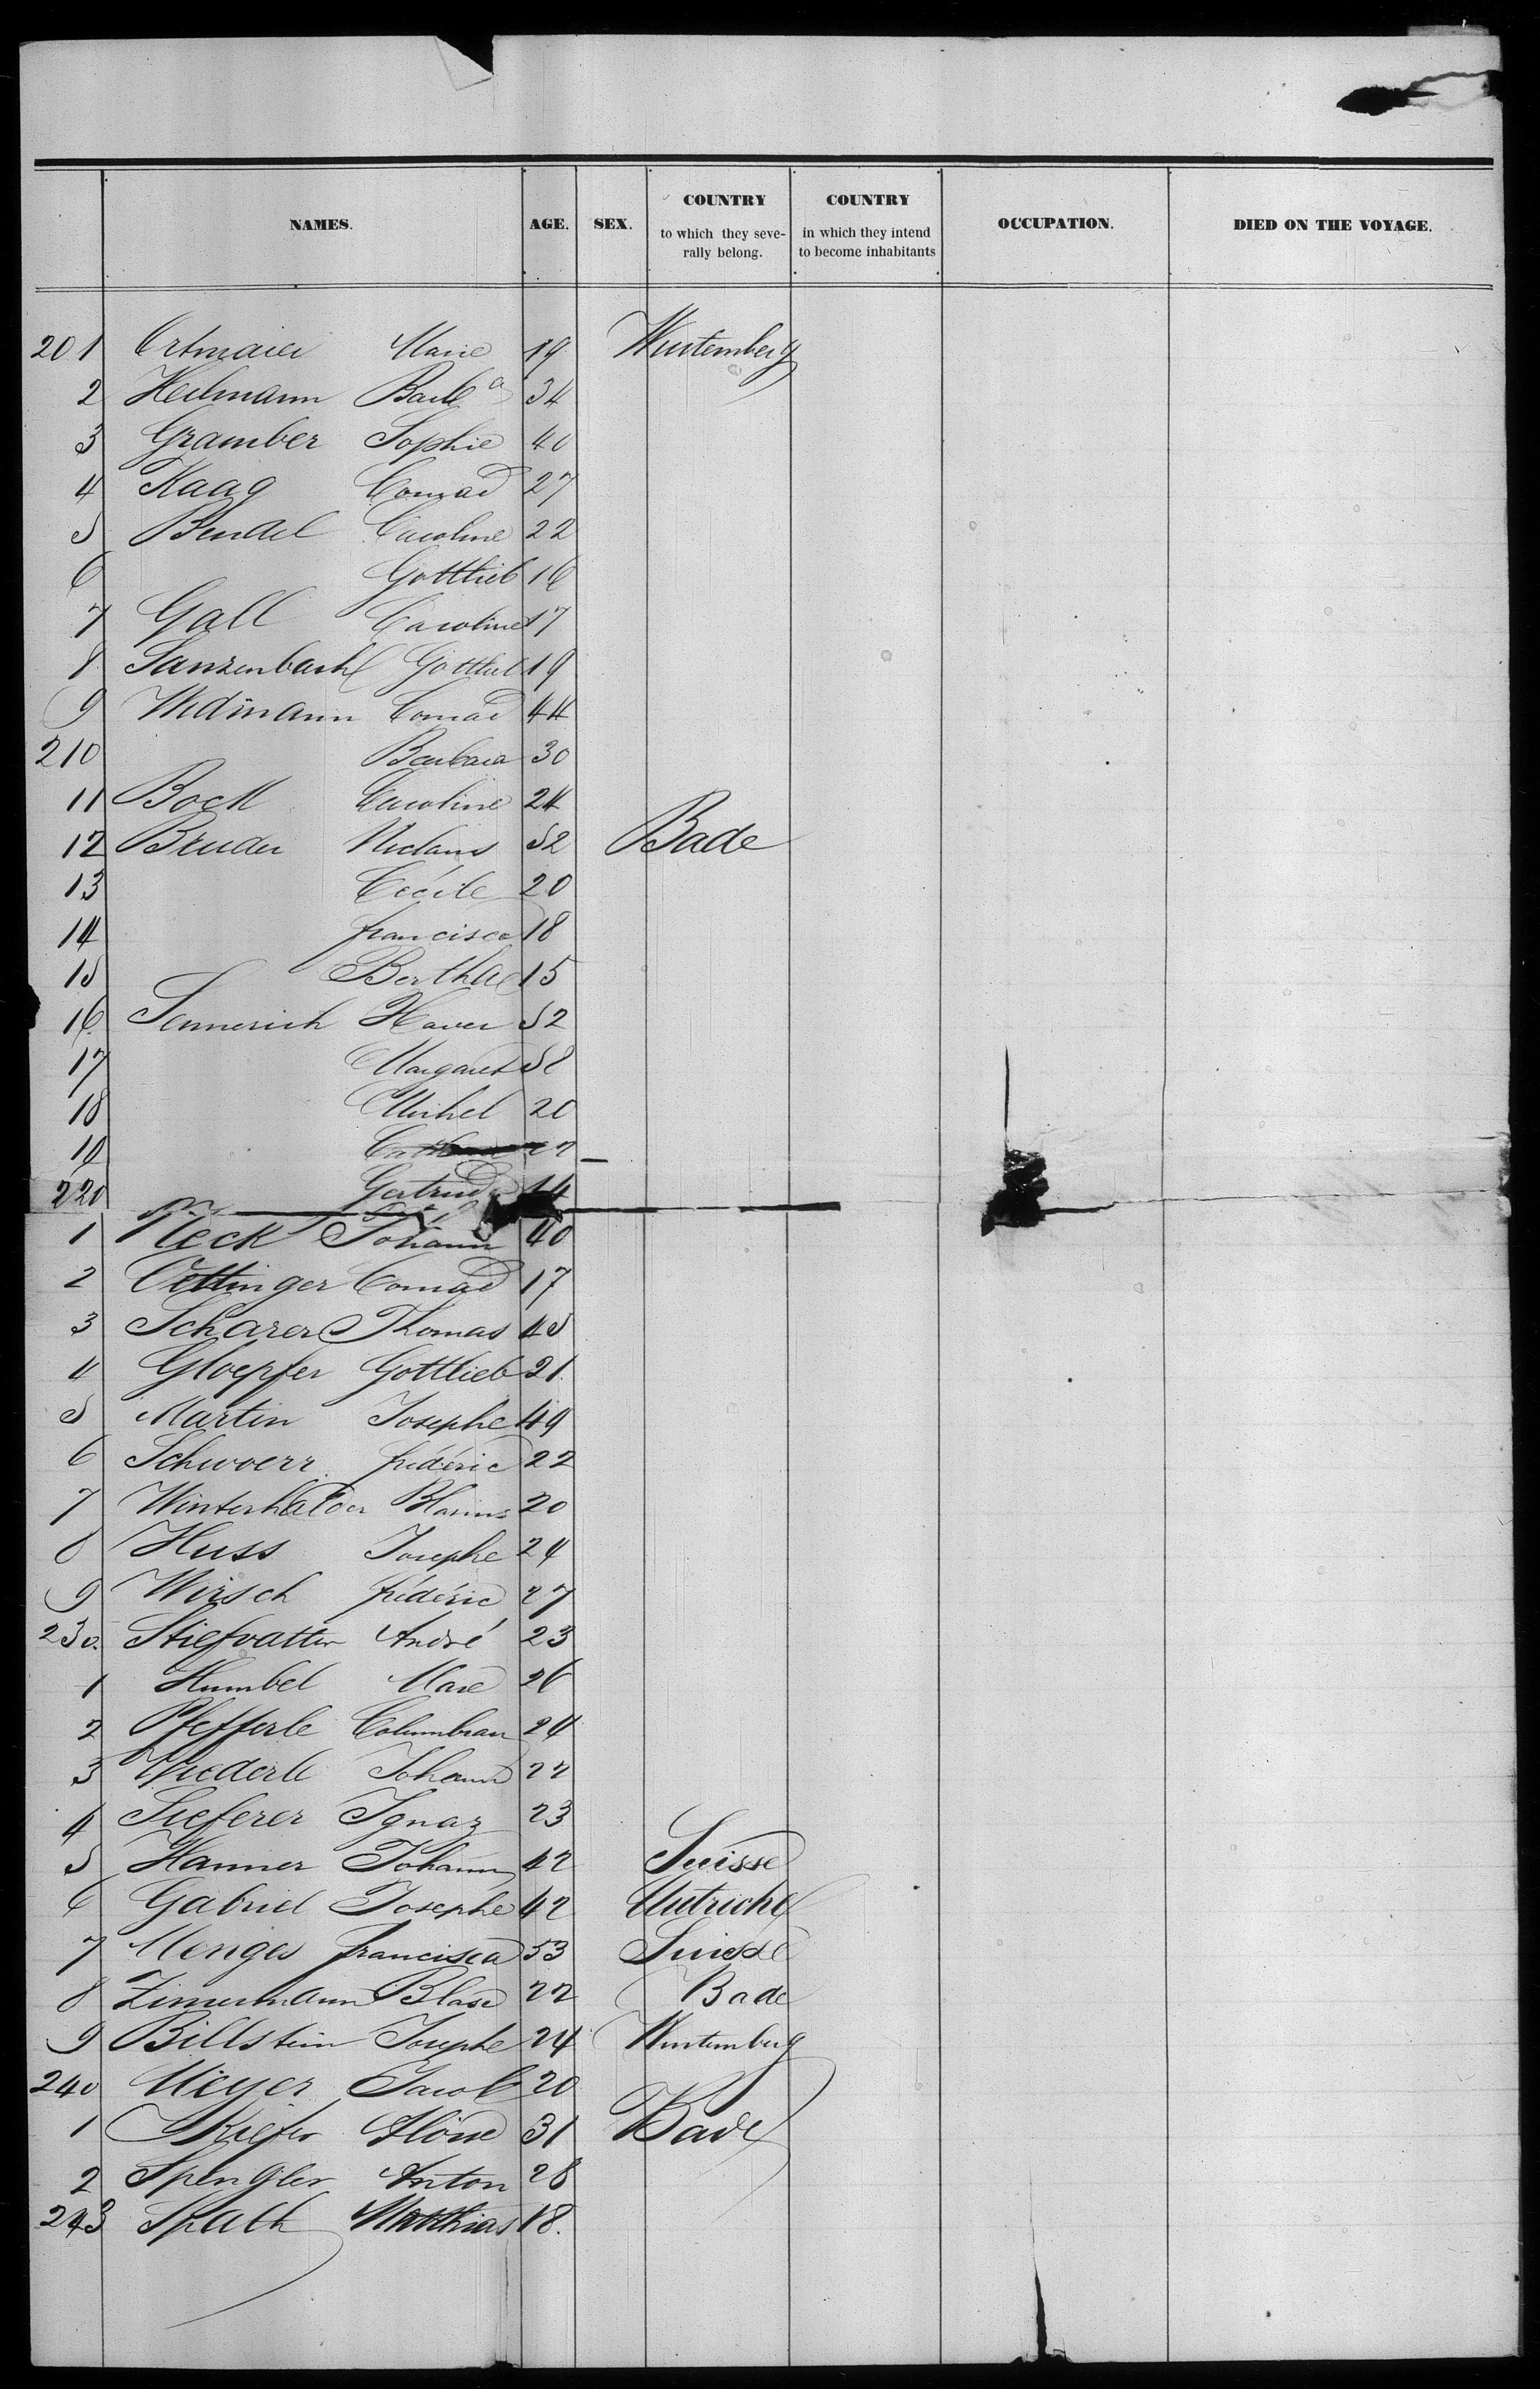 NAMES. AGE. SEX. COUNTRY to which they seve-rally belong. COUNTRY in which they intend to become inhabitants OCCUPATION. DIED ON THE VOYAGE.
201 Ortmaier Marie 19 Wurtemberg
2 Heilmann Barb^a 34
3 Gramber Sophie 40
4 Kaag Conrad 27
5 Bendel Caroline 22
6 Gottlieb 16
7 Gall Caroline 17
8 Sanzenbach Gottlieb 19
9 Widmann Conrad 44
210 Barbara 30
11 Bock Caroline 24
12 Bruder Niclaus 52 Bade
13 Cécile 20
14 francisca 18
15 Bertha 15
16 Xaver 52
17 Margaret 58
18 Michel 20
19 22
220 Gertrud 14
1 Keck Johann 40
2 Oettinger Conrad 17
3 Scharer Thomas 45
4 Gloepfer Gottlieb 21
5 Martin Josephe 49
6 Schwoerr frédéric 22
7 Winterhalder 20
8 Huss Josephe 24
9 Wirsch frédéric 27
230 Stiefvatter André 23
1 Humbel 26
2 Pfefferle Columban 24
3 Johann 22
4 Sieferer Ignaz 23
5 Hanner Johann 42 Suisse
6 Gabriel Josephe 42 Autriche
7 Menges francisca 53 Suisse
8 Zimermann Blase 22 Bade
9 Billstein Josephe 24 Wurtemberg
240 Meyer Jacob 20
1 Kiefer 31 Bade
2 Spengler Anton 28
243 Spath Matthias 18.